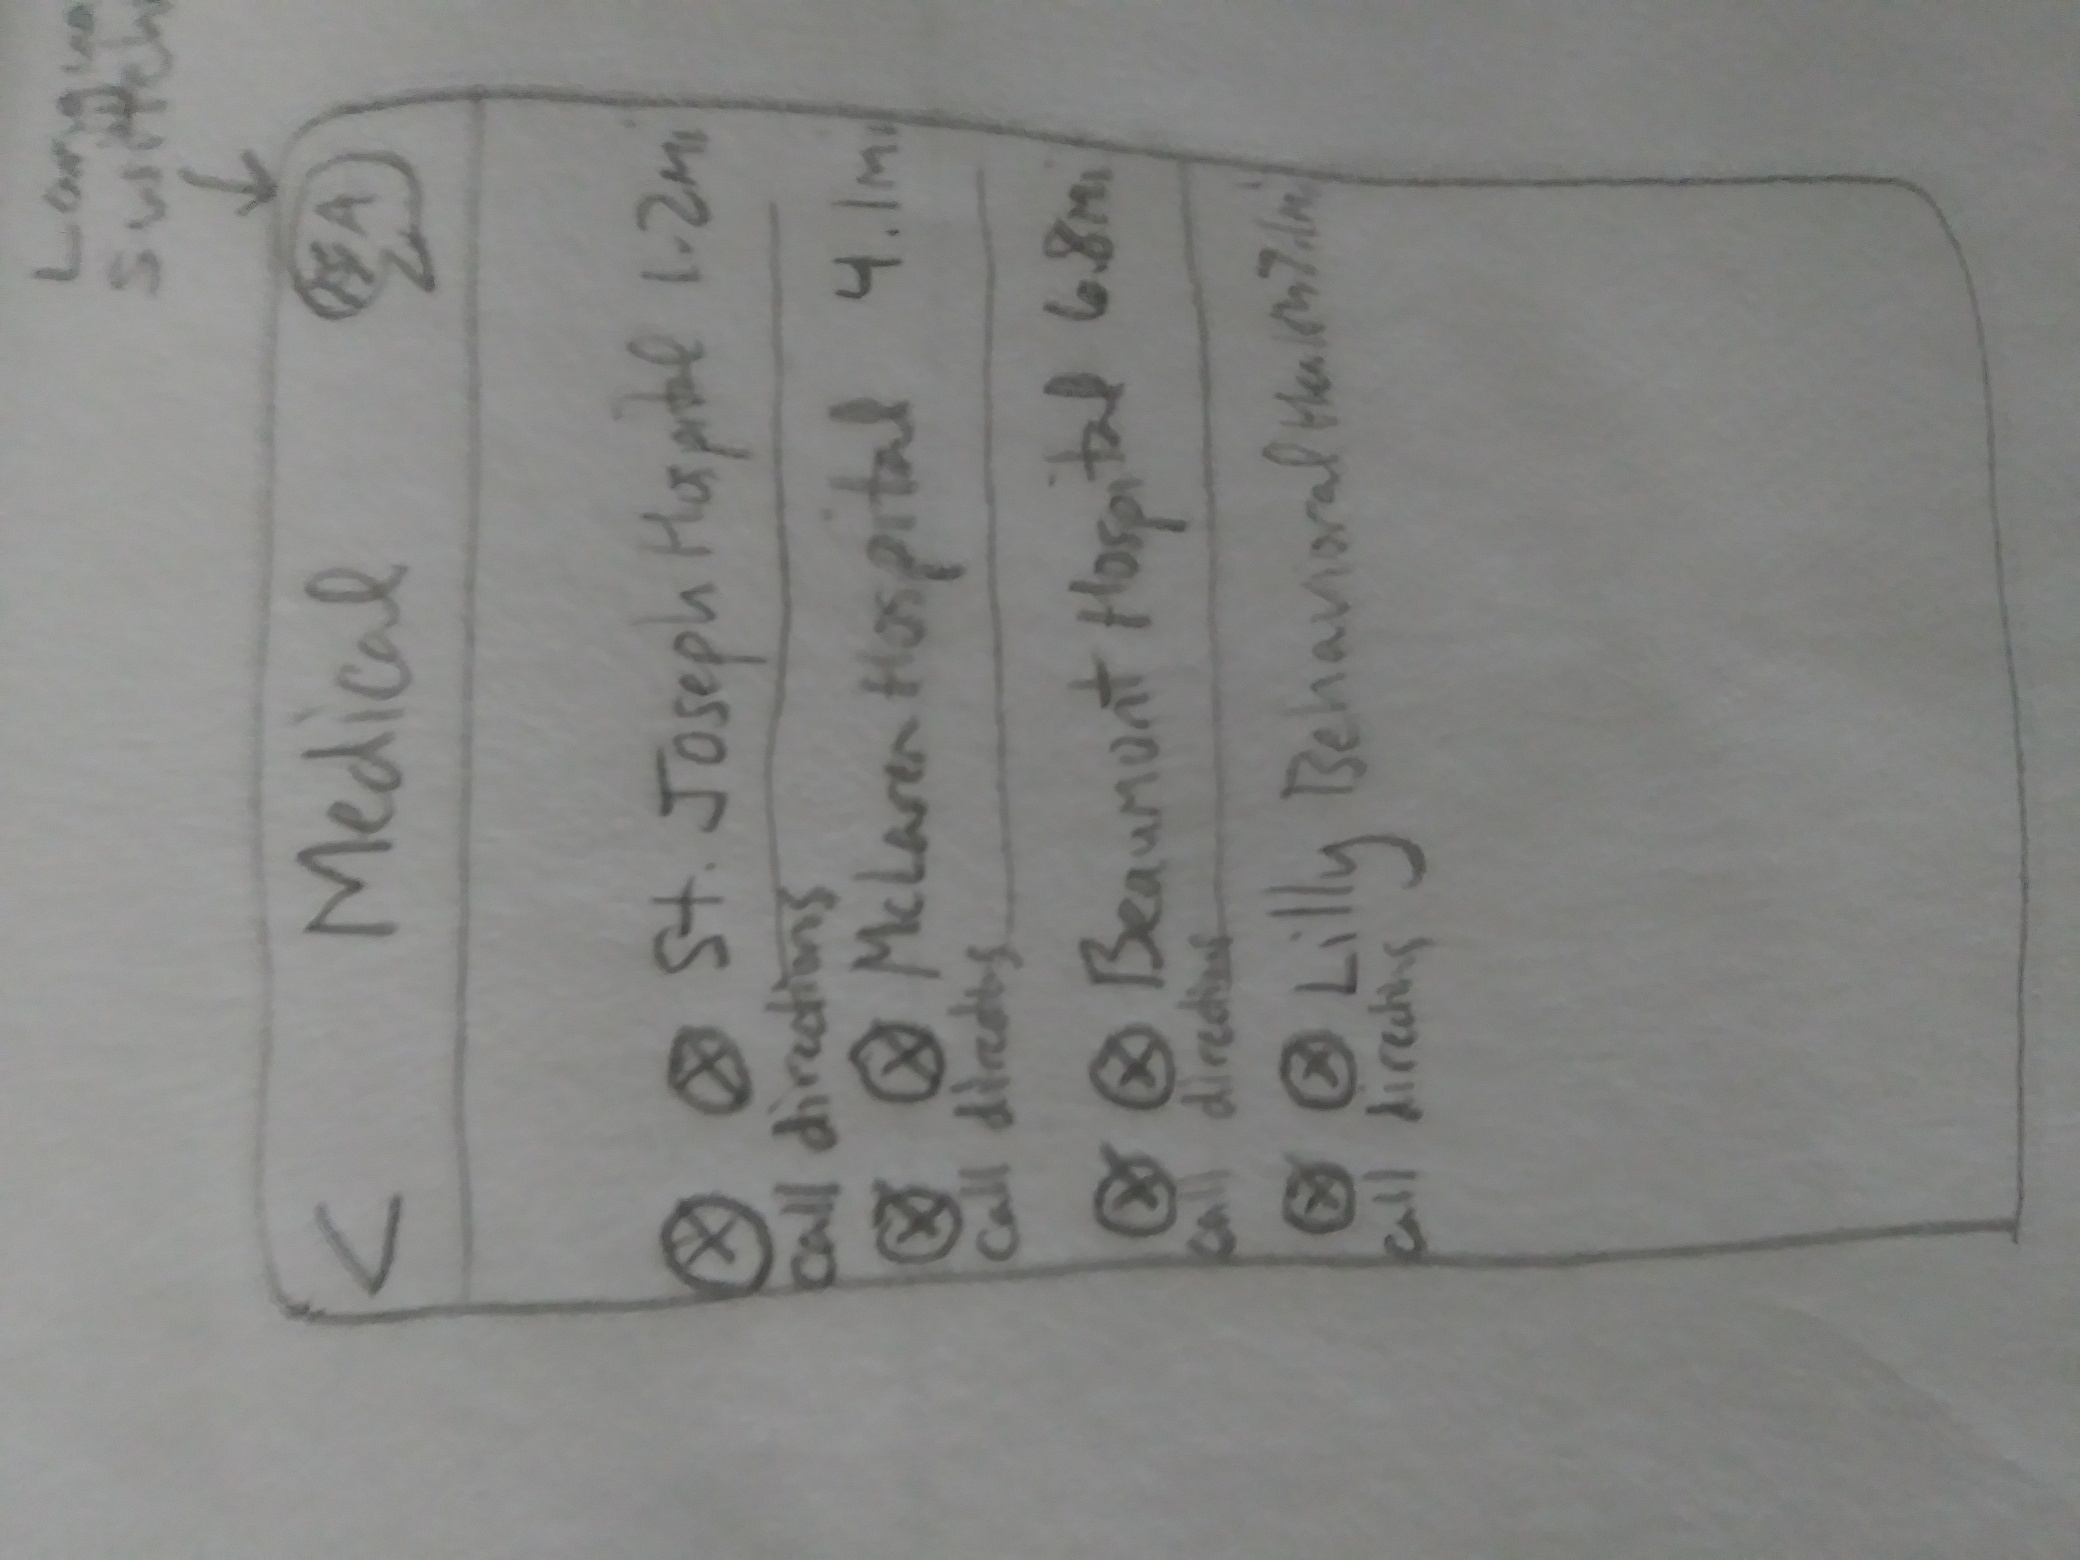 Langua
Switch
< Medical A
St. Joseph Hospital 1.2mi
call directions
McLaren Hospital 4.1mi
call directins
Beaumont Hospital 6.8mi
call directions
Lilly Behavioral Health 7.1mi
call directins